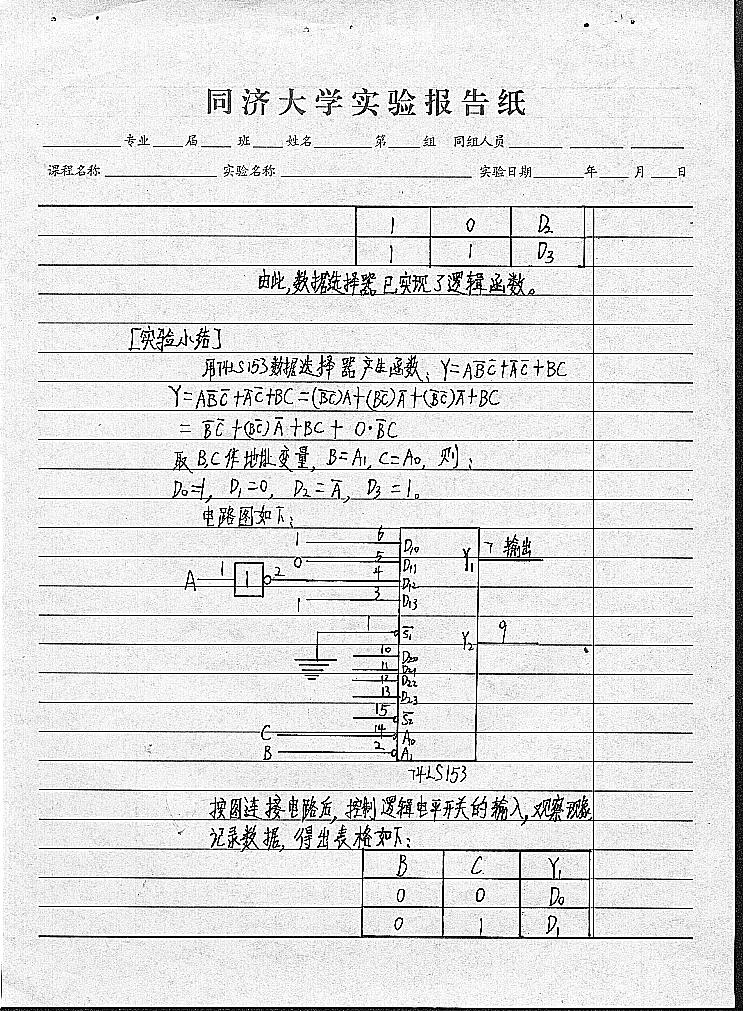 同济大学实验报告纸
专业 届 班 姓名 第 组 同组人员
课程名称 实验名称 实验日期 年 月 日
1 0 D₂
1 1 D₃
由此,数据选择器已实现了逻辑函数。
[实验小结]
用74LS153数据选择器产生函数、Y=AB̅C̅+A̅C̅+BC
Y=AB̅C̅+A̅C̅+BC=(B̅C̅)A+(BC̅)A̅+(B̅C̅)A̅+BC
= B̅C̅+(BC̅)A̅+BC+0·B̅C
取B,C作地址变量, B=A₁, C=A₀, 则:
D₀=1, D₁=0, D₂=A̅, D₃=1。
电路图如下:
1 6 D₁₀ Y₁ 7 输出
0 5 D₁₁
A 1 1 2 4 D₁₂
1 3 D₁₃
1 S̅₁ Y₂ 9
10 D₂₀
11 D₂₁
12 D₂₂
13 D₂₃
15 S̅₂
C 14 A₀
B 2 A₁
74LS153
按图连接电路后,控制逻辑电平开关的输入,观察现象
记录数据,得出表格如下:
B C Y₁
0 0 D₀
0 1 D₁